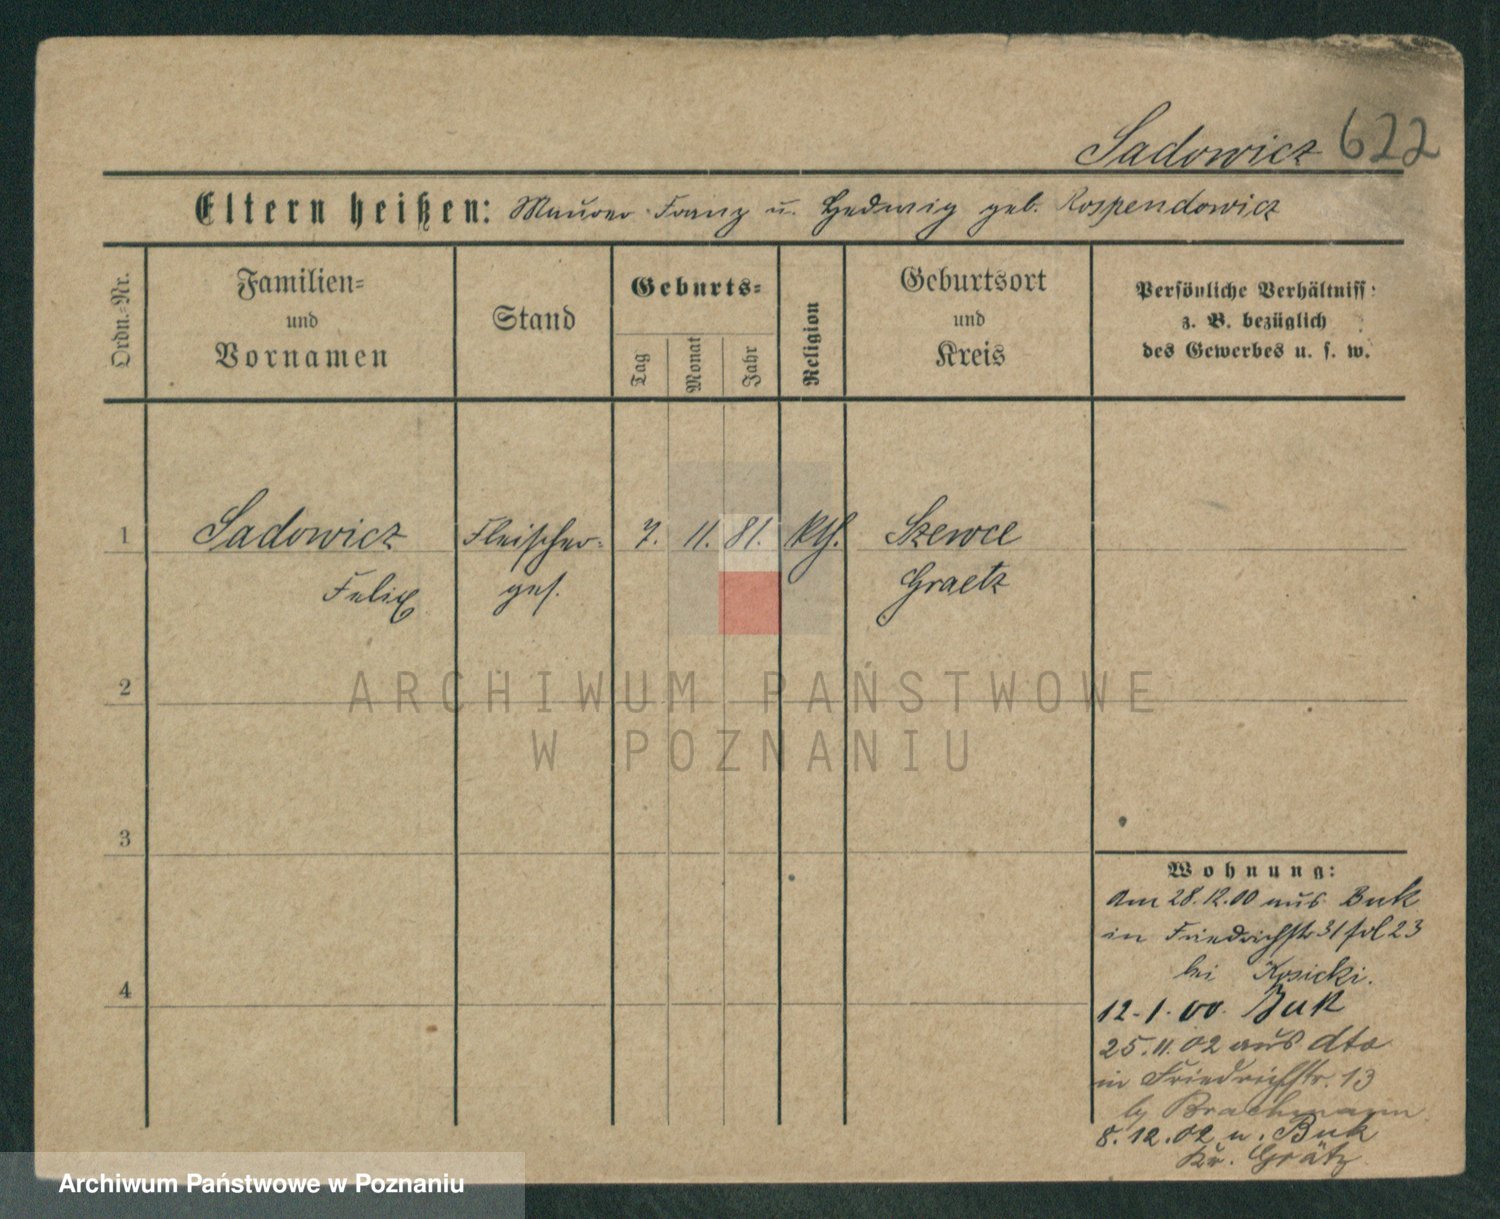 Sadowicz 622
Eltern heißen: Maurer Franz u. Hedwig geb. Rospendowicz
Ordn.-Nr.
Familien=
und
Vornamen
Stand
Geburts=
Tag
Monat
Jahr
Religion
Geburtsort
und
Kreis
Persönliche Verhältniss:
z. B. bezüglich
des Gewerbes u. s. w.
1 Sadowicz Fleischer= 7. 11. 81. kth. Szewce
Felix ges. Graetz
2
ARCHIWUM PAŃSTWOWE
W POZNANIU
3
4
Wohnung:
Am 28.12.00 aus Buk
in Friedrichstr 31 fol 23
bei Kosicki.
12.1.00. Buk
25.11.02 aus dto
in Friedrichstr. 13
by Brachmann
8.12.02 n. Buk
Kr. Grätz
Archiwum Państwowe w Poznaniu